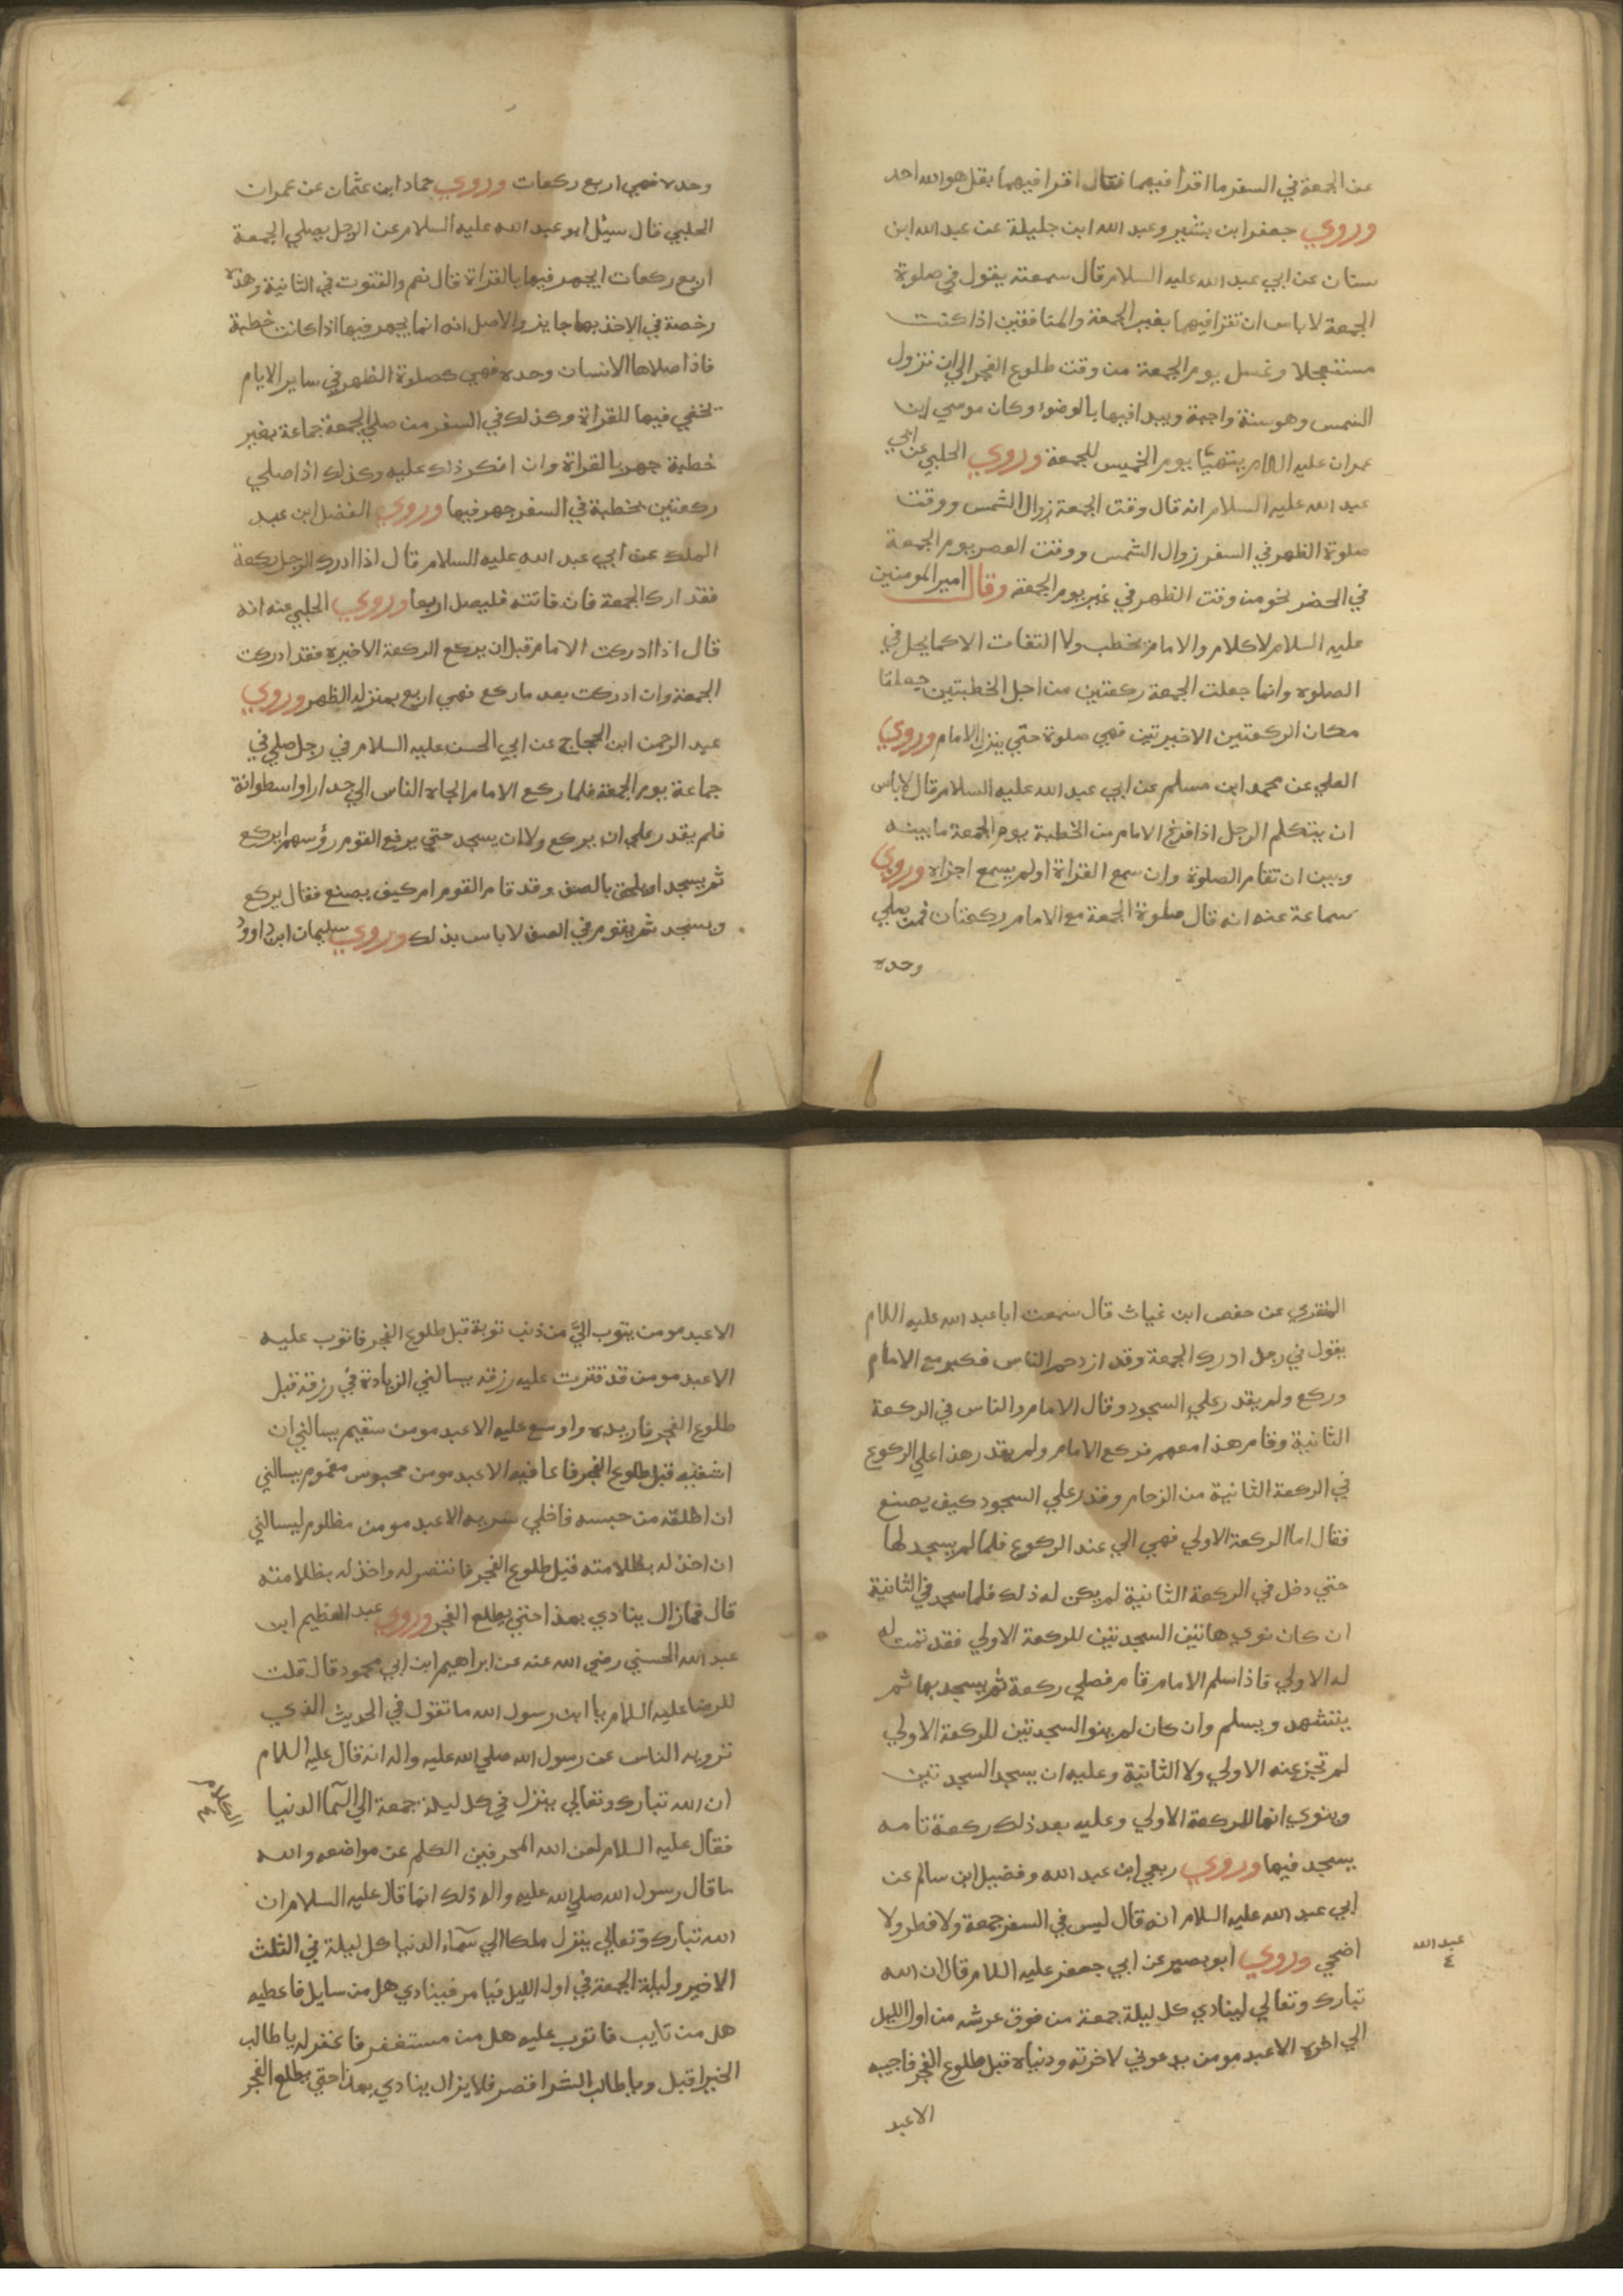 عن الجمعة في السفر ما اقرا فيهما فقال اقرا فيهما بقل هو الله احد
وروي جعفر ابن بشير وعبد الله ابن جليلة عن عبد الله ابن
سنان عن ابي عبد الله عليه السلام قال سمعته يقول في صلوة
الجمعة لا باس ان تقرا فيهما بغير الجمعة والمنافقين اذا كنت
مستعجلا وغسل يوم الجمعة من وقت طلوع الفجر الي ان تزول
الشمس وهو سنة واجبة ويبدا فيها بالوضوء وكان موسي ابن
عمران عليه اللام يتهيّا يوم الخميس للجمعة وروي الحلبي عن ابي
عبد الله عليه السلام انه قال وقت الجمعة زوال الشمس ووقت
صلوة الظهر في السفر زوال الشمس ووقت العصر يوم الجمعة
في الحضر نحو من وقت الظهر في غير يوم الجمعة وقال امير المومنين
عليه السلام لا كلام والامام يخطب ولا التفات الا كما يحل في
الصلوه وانما جعلت الجمعة ركعتين من اجل الخطبتين جعلتا
مكان الركعتين الاخيرتين فهي صلوة حتي ينزل الامام وروي
العلي عن محمد ابن مسلم عن ابي عبد الله عليه السلام قال لا باس
ان يتكلم الرجل اذا فرغ الامام من الخطبة يوم الجمعة ما بينه
وبين ان تقام الصلوة وان سمع القراة اولم يسمع اجزاه وروي
سماعة عنه انه قال صلوة الجمعة مع الامام ركعتان فمن صلي
وحده
وحده فهي اربع ركعات وروي حماد ابن عثمان عن عمران
الحلبي قال سيئل ابو عبد الله عليه السلام عن الرجل يصلي الجمعة
اربع ركعات ايجهر فيها بالقراة قال نعم والقنوت في الثانية وهذه
رخصة في الاخذ بها جايز والاصل انه انما يجهر فيها اذا كانت خطبة
فاذا صلاها الانسان وحده فهي كصلوة الظهر في ساير الايام
يخفي فيها للقراة وكذلك في السفر من صلي الجمعة جماعة بغير
خطبة جهر بالقراة وان انكر ذلك عليه وكذلك اذا صلي
ركعتين بخطبة في السفر جهر فيها وروي الفضل ابن عبد
الملك عن ابي عبد الله عليه السلام قال اذا ادرك الرجل ركعة
فقد ادرك الجمعة فان فاتته فليصل اربعا وروي الحلبي عنه انه
قال اذا ادركت الامام قبل ان يركع الركعة الاخيرة فقد ادركت
الجمعة وان ادركت بعد ما ركع فهي اربع بمنزله الظهر وروي
عبد الرحمن ابن الحجاج عن ابي الحسن عليه السلام في رجل صلي في
جماعة يوم الجمعة فلما ركع الامام الجاه الناس الي جدار او اسطوانة
فلم يقدر علي ان يركع ولا ان يسجد حتي يرفع القوم رؤسهم ايركع
ثم يسجد او يلحق بالصف وقد قام القوم ام كيف يصنع فقال يركع
ويسجد ثم يقوم في الصف لا باس بذلك وروي سليمان ابن داوود
المنقري عن حفص ابن غياث قال سمعت ابا عبد الله عليه اللام
يقول في رجل ادرك الجمعة وقد ازدحم الناس فكبر مع الامام
وركع ولم يقدر علي السجود وقال الامام والناس في الركعة
الثانية وقام هذا معهم فركع الامام ولم يقدر هذا علي الركوع
في الركعة الثانية من الزحام وقدر علي السجود كيف يصنع
فقال اما الركعة الاولي فهي الي عند الركوع فلما لم يسجد لها
حتي دخل في الركعة الثانية لم يكن له ذلك فلما سجد في الثانية
ان كان نوي هاتين السجدتين للركعة الاولي فقد تمت له
له الاولي فاذا سلم الامام قام فصلي ركعة ثم يسجد بها ثم
يتشهد ويسلم وان كان لم ينو السجدتين للركعة الاولي
لم تجز عنه الاولي ولا الثانية وعليه ان يسجد السجدتين
وينوي انها للركعة الاولي وعليه بعد ذلك ركعة تامه
يسجد فيها وروي ربعي ابن عبد الله وفضيل ابن سالم عن
ابي عبد الله عليه السلام انه قال ليس في السفر جمعة ولا فطر ولا
اضحي وروي ابو بصير عن ابي جعفر عليه اللام قال ان الله
عبد الله
٤
تبارك وتعالي لينادي كل ليلة جمعة من فوق عرشه من اول الليل
الي اخره الا عبد مومن يدعوني لاخرته ودنياه قبل طلوع الفجر فاجيبه
الا عبد
الا عبد مومن يتوب اليَّ من ذنب توبة قبل طلوع الفجر فاتوب عليه
الا عبد مومن قد قترت عليه رزقه يسالني الزيادة في رزقه قبل
طلوع الفجر فازيده واوسع عليه الا عبد مومن سقيم يسالني ان
اشفيه قبل طلوع الفجر فاعافيه الا عبد مومن محبوس مغموم يسالني
ان اطلقه من حبسه فاخلي سربه الا عبد مومن مظلوم ليسالني
ان اخذ له بظلامته قبل طلوع الفجر فانتصر له واخذ له بظلامته
قال فما زال ينادي بهذا حتي يطلع الفجر وروي عبد العظيم ابن
عبد الله الحسني رضي الله عنه عن ابراهيم ابن ابي محمود قال قلت
للرضا عليه اللام يا ابن رسول الله ما تقول في الحديث الذي
ترويه الناس عن رسول الله صلي الله عليه واله انه قال عليه اللام
ان الله تبارك وتعالي ينزل في كل ليلة جمعة الي السمآ الدنيا
الكلام
٤
فقال عليه السلام لعن الله المحرفين الكلم عن مواضعه والله
ما قال رسول الله صلي الله عليه واله ذلك انما قال عليه السلام ان
الله تبارك وتعالي ينزل ملكا الي سمآء الدنيا كل ليلة في الثلث
الاخير وليلة الجمعة في اول الليل فيامر فينادي هل من سايل فاعطيه
هل من تايب فاتوب عليه هل من مستغفر فاغفر له يا طالب
الخير اقبل ويا طالب الشر اقصر فلا يزال ينادي بهذا حتي يطلع الفجر